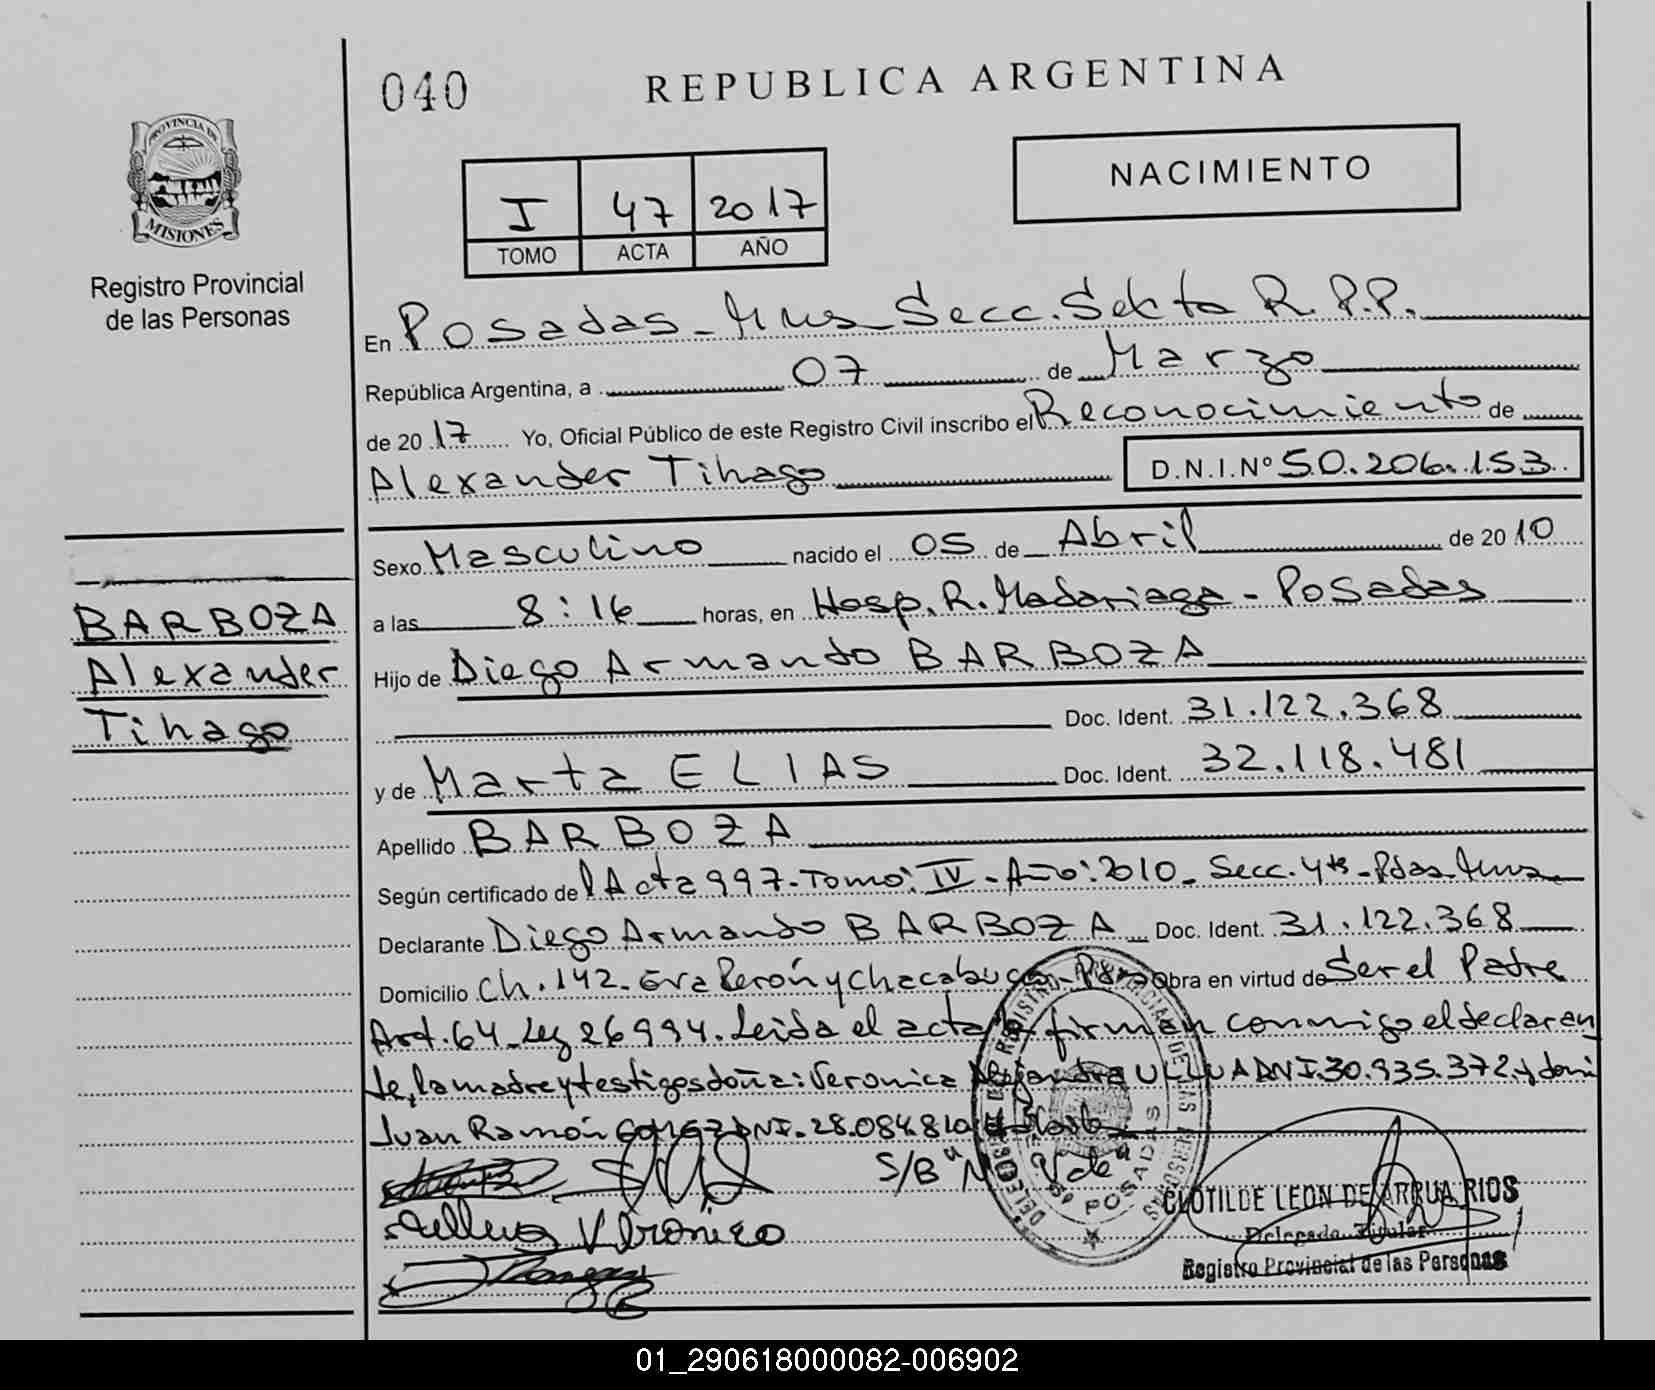 040
REPUBLICA ARGENTINA
PROVINCIA DE
MISIONES
Registro Provincial
de las Personas
I 47 2017
TOMO ACTA AÑO
NACIMIENTO
En Posadas - Mnes Secc. Sexta R. P.P.
República Argentina, a 07 de Marzo
de 2017 Yo, Oficial Público de este Registro Civil inscribo el Reconocimiento de
Alexander Tihago D.N.I.Nº 50.206.153
BARBOZA
Alexander
Tihago
Sexo Masculino nacido el 05 de Abril de 2010
a las 8:16 horas, en Hosp. R. Madariaga - Posadas
Hijo de Diego Armando BARBOZA
Doc. Ident. 31.122.368
y de Marta ELIAS Doc. Ident. 32.118.481
Apellido BARBOZA
Según certificado del Acta 997 - Tomo: IV - Año: 2010 - Secc. 4ta - Pdas. Mnes
Declarante Diego Armando BARBOZA Doc. Ident. 31.122.368
Domicilio Ch. 142 - Eva Perón y Chacabuco - Obra en virtud de Ser el Padre
Art. 64 - Ley 26994. Leída el acta la firman conmigo el declaran
te, la madre y testigos doña: Veronica Alejandra DNI. 30.935.372 y don:
Juan Ramón GOMEZ DNI. 28.084.810
S/B
Veronica
POSADAS
CLOTILDE LEON DE ARRUA RIOS
Delegada Titular
Registro Provincial de las Personas
01_290618000082-006902